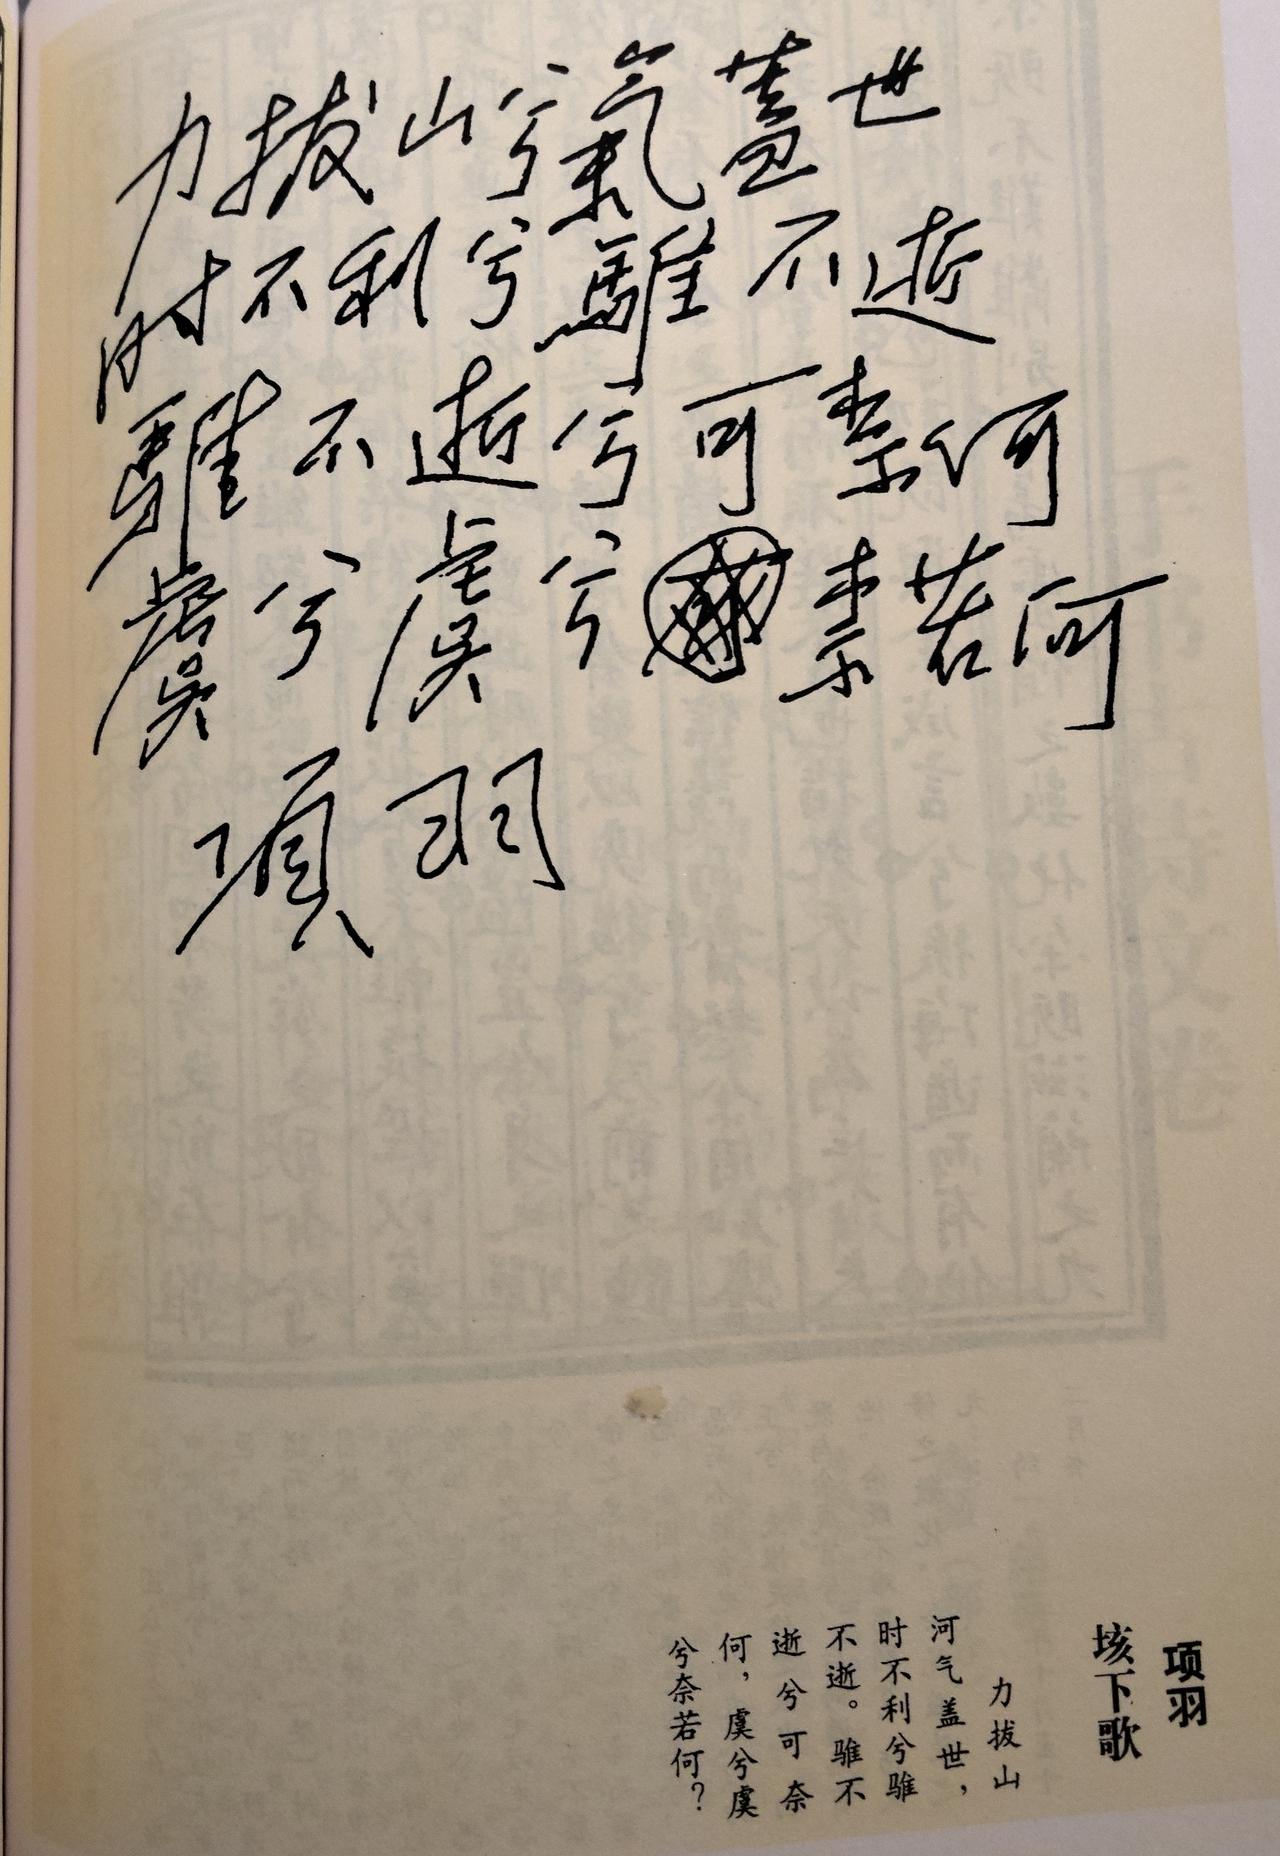 力拔山兮氣蓋世
时不利兮騅不逝
騅不逝兮可柰何
虞兮虞兮柰若何
項羽
项羽
垓下歌
力拔山
河气盖世，
时不利兮骓
不逝。骓不
逝兮可奈
何，虞兮虞
兮奈若何？